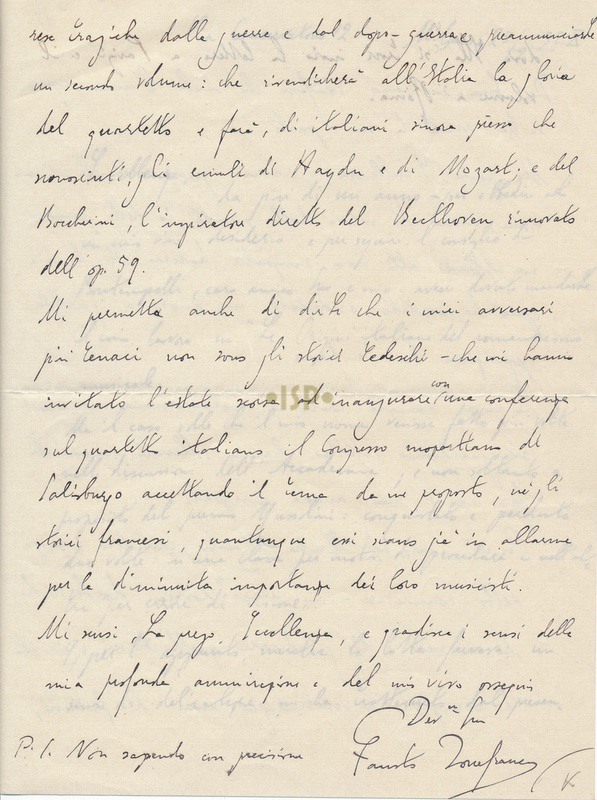 rese tragiche dalle guerre e dal dopo-guerra e preannunciante
un secondo volume: che rivendicherà all'Italia la gloria
del quartetto e farà, di italiani sinora presso che
sconosciuti, gli emuli di Haydn e di Mozart; e del
Boccherini, l'inspiratore diretto del Beethoven rinnovato
dell'op. 59.
Mi permetta anche di dirLe che i miei avversari
più tenaci non sono gli storici tedeschi - che mi hanno
invitato l'estate scorsa ad inaugurare con una conferenza
sul quartetto italiano il Congresso mozartiano di
Salisburgo accettando il tema da me proposto, ma gli
storici francesi, quantunque essi siano già in allarme
per la diminuita importanza dei loro musicisti.
Mi scusi, La prego, Eccellenza, e gradisca i sensi della
mia profonda ammirazione e del mio vivo ossequio
Dev.mo Suo
Fausto Torrefranca
P.S. Non sapendo con precisione
•ISP•
K